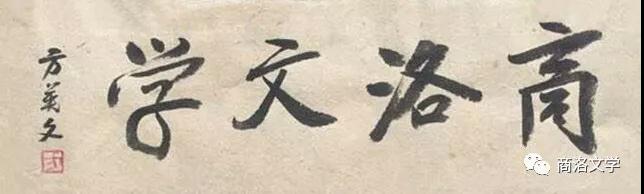 商洛文学
方英文
商洛文学